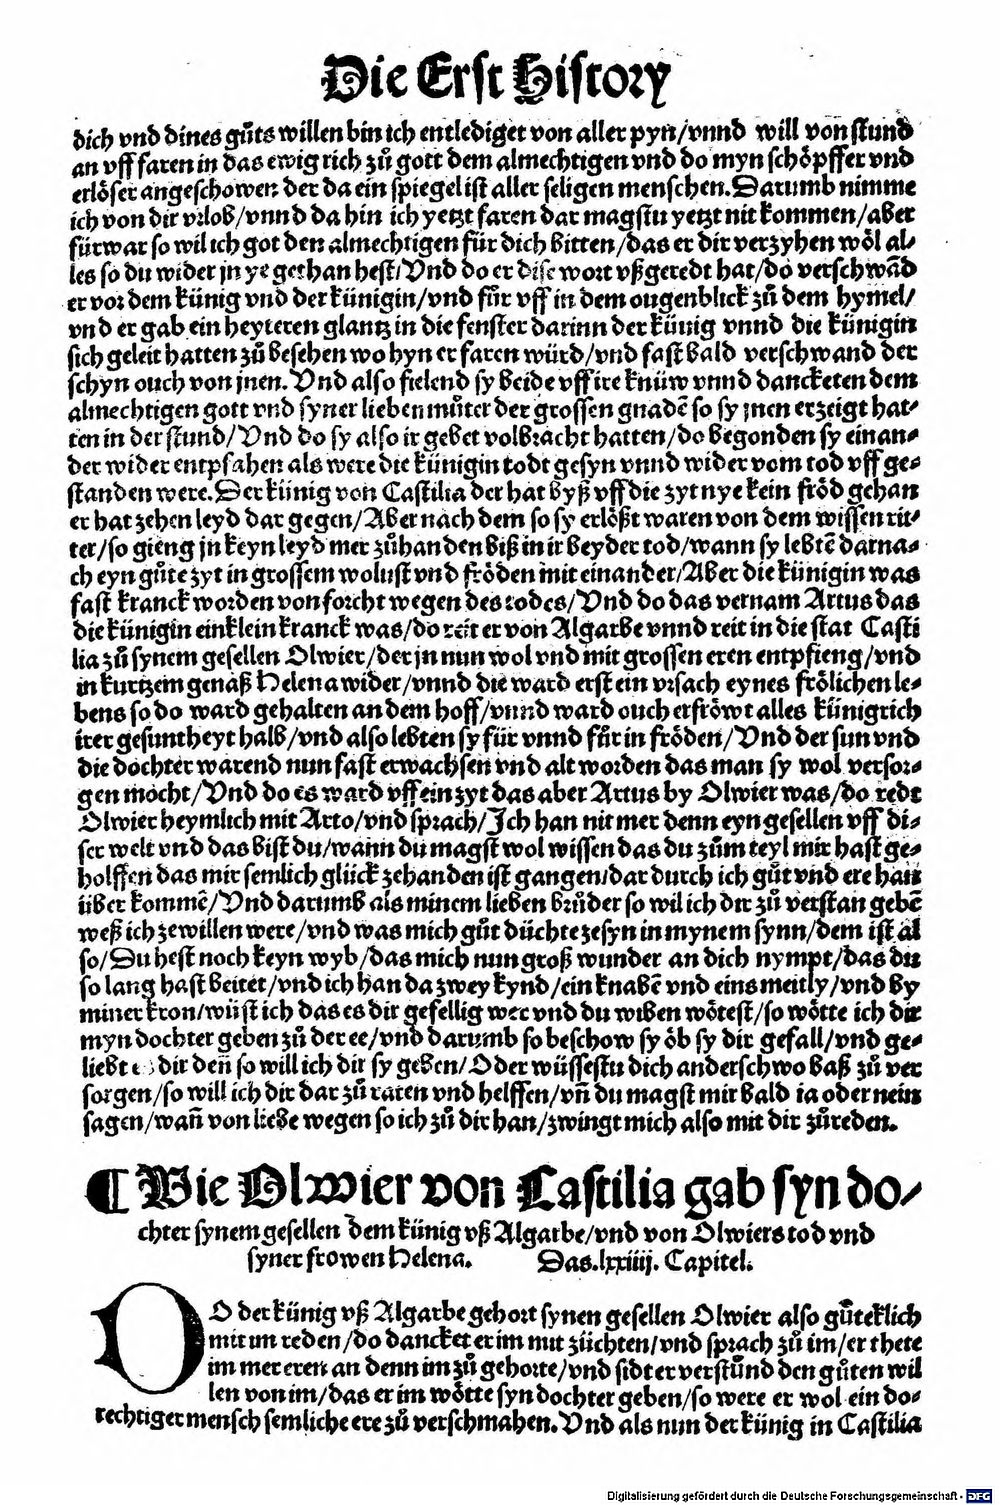 Die Erst History
dich vnd dines guͦts willen bin ich entlediget von aller pyn/vnnd will von stund
an vff faren in das ewig rich zuͦ gott dem almechtigen vnd do myn schöpffer vnd
erlöser angeschowen der da ein spiegel ist aller seligen menschen. Darumb nimme
ich von dir vrlob/vnnd da hin ich yetzt faren dar magstu yetzt nit kommen/aber
fürwar so wil ich got den almechtigen für dich bitten/das er dir verzyhen wöl al⸗
les so du wider jn ye gethan hest/Vnd do er dise wort vßgeredt hat/do verschwād
er vor dem künig vnd der künigin/vnd fuͦr vff in dem ougenblick zuͦ dem hymel/
vnd er gab ein heyteren glantz in die fenster darinn der künig vnnd die künigin
sich geleit hatten zuͦ besehen wo hyn er faren würd/vnd fast bald verschwand der
schyn ouch von jnen. Vnd also fielend sy beide vff ire knüw vnnd dancketen dem
almechtigen gott vnd syner lieben muͦter der grossen gnadē so sy jnen erzeigt hat⸗
ten in der stund/Vnd do sy also ir gebet volbracht hatten/do begonden sy einan⸗
der wider entpfahen als were die künigin todt gesyn vnnd wider vom tod vff ge⸗
standen were. Der künig von Castilia der hat byß vff die zyt nye kein fröd gehan
er hat zehen leyd dar gegen/Aber nach dem so sy erlößt waren von dem wissen rit⸗
ter/so gieng jn keyn leyd mer zuͦhanden biß in ir beyder tod/wann sy lebtē darna⸗
ch eyn guͦte zyt in grossem wolust vnd fröden mit einander/Aber die künigin was
fast kranck worden von forcht wegen des todes/Vnd do das vernam Artus das
die künigin ein klein kranck was/do reit er von Algarbe vnnd reit in die stat Casti
lia zuͦ synem gesellen Olwier/der jn nun wol vnd mit grossen eren entpfieng/vnd
in kurtzem genaß Helena wider/vnnd die ward erst ein vrsach eynes frölichen le⸗
bens so do ward gehalten an dem hoff/vnnd ward ouch erfröwt alles künigrich
irer gesuntheyt halb/vnd also lebten sy für vnnd fuͦr in fröden/Vnd der sun vnd
die dochter warend nun fast erwachsen vnd alt worden das man sy wol versor⸗
gen mocht/Vnd do es ward vff ein zyt das aber Artus by Olwier was/do redt
Olwier heymlich mit Arto/vnd sprach/Ich han nit mer denn eyn gesellen vff di⸗
ser welt vnd das bist du/wann du magst wol wissen das du zuͦm teyl mir hast ge⸗
holffen das mir semlich glück zehanden ist gangen/dar durch ich guͦt vnd ere han
über kommē/Vnd darumb als minem lieben bruͦder so wil ich dir zuͦ verstan gebē
weß ich ze willen were/vnd was mich guͦt düchte ze syn in mynem synn/dem ist al
so/Du hest noch keyn wyb/das mich nun groß wunder an dich nympt/das du
so lang hast beitet/vnd ich han da zwey kynd/ein knabē vnd eins meitly/vnd by
miner kron/wüst ich das es dir gefellig wer vnd du wiben wötest/so wötte ich dir
myn dochter geben zuͦ der ee/vnd darumb so beschow sy öb sy dir gefall/vnd ge⸗
liebt dir deñ so will ich dir sy geben/Oder wüssestu dich anderschwo baß zuͦ ver
sorgen/so will ich dir dar zuͦ raten vnd helffen/vñ du magst mir bald ia oder nein
sagen/wañ von liebe wegen so ich zuͦ dir han/zwingt mich also mit dir zuͦ reden.
¶ Wie Olwier von Castilia gab syn do⸗
chter synem gesellen dem künig vß Algarbe/vnd von Olwiers tod vnd
syner frowen Helena. Das.lxxiiij. Capitel.
DO der künig vß Algarbe gehort synen gesellen Olwier also guͦteklich
mit im reden/do dancket er im mit züchten/vnd sprach zuͦ im/er thete
im mer eren an denn im zuͦ gehorte/vnd sidt er verstuͦnd den guͦten wil
len von im/das er im wötte syn dochter geben/so were er wol ein do⸗
rechtiger mensch semliche ere zuͦ verschmahen. Vnd als nun der künig in Castilia
Digitalisierung gefördert durch die Deutsche Forschungsgemeinschaft - DFG